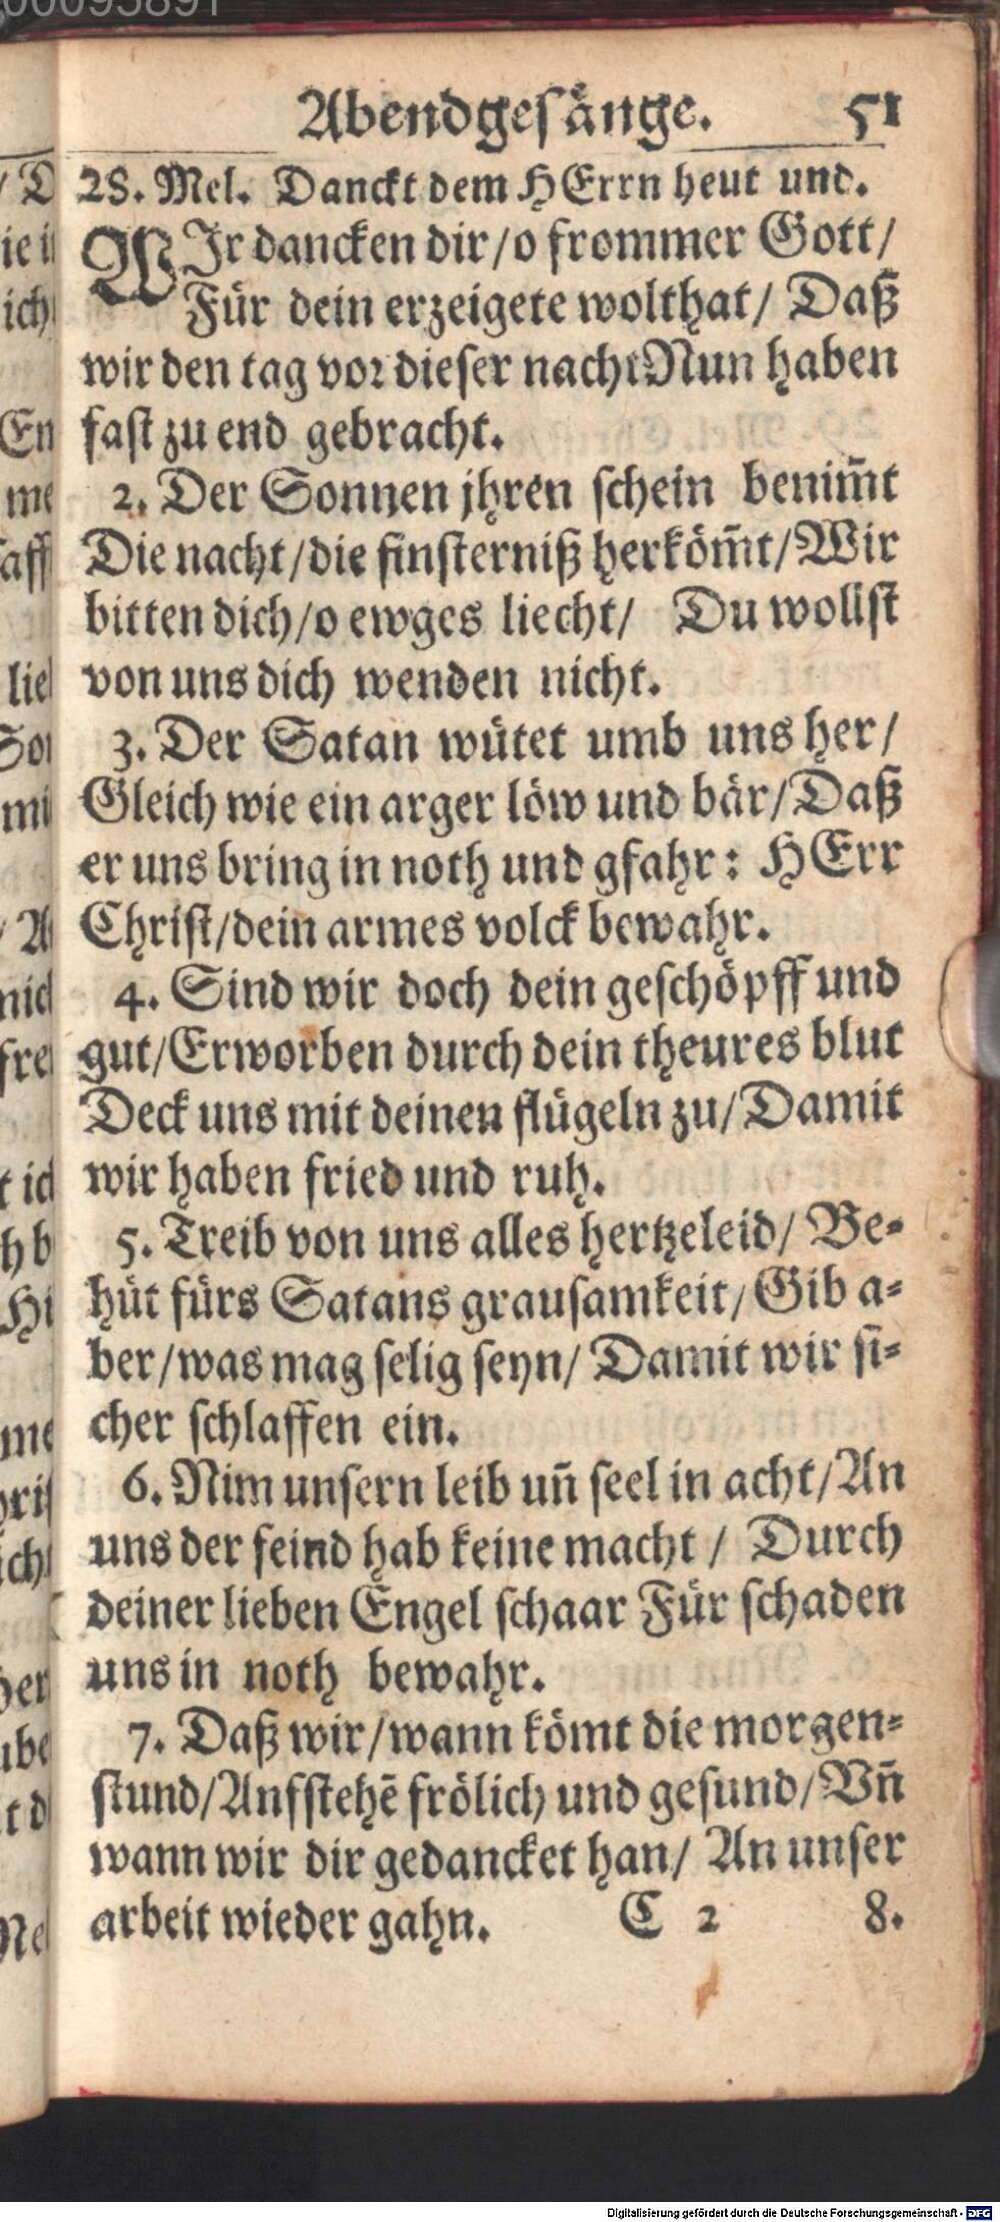 Abendgesänge. 51
28. Mel. Danckt dem HErrn heut und.
WIr dancken dir/o frommer Gott/
Für dein erzeigete wolthat/ Daß
wir den tag vor dieser nacht Nun haben
fast zu end gebracht.
2. Der Sonnen jhren schein benim̃t
Die nacht/die finsterniß herköm̃t/Wir
bitten dich/o ewges liecht/ Du wollst
von uns dich wenden nicht.
3. Der Satan wütet umb uns her/
Gleich wie ein arger löw und bär/Daß
er uns bring in noth und gfahr: HErr
Christ/dein armes volck bewahr.
4. Sind wir doch dein geschöpff und
gut/Erworben durch dein theures blut
Deck uns mit deinen flügeln zu/Damit
wir haben fried und ruh.
5. Treib von uns alles hertzeleid/ Be-
hüt fürs Satans grausamkeit/Gib a-
ber/was mag selig seyn/ Damit wir si-
cher schlaffen ein.
6. Nim unsern leib uñ seel in acht/An
uns der feind hab keine macht/ Durch
deiner lieben Engel schaar Für schaden
uns in noth bewahr.
7. Daß wir/wann kömt die morgen-
stund/Anfstehẽ frölich und gesund/Vñ
wann wir dir gedancket han/ An unser
arbeit wieder gahn. C 2 8.
Digitalisierung gefördert durch die Deutsche Forschungsgemeinschaft - DFG